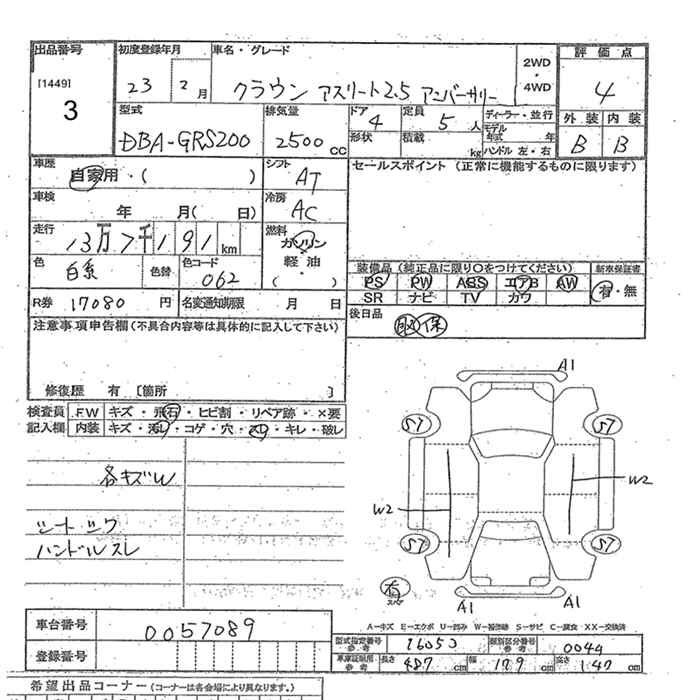 出品番号 初度登録年月 車名・グレード 2WD・4WD 評価点
[1449] 3
23 2月 クラウン アスリート2.5 アニバーサリー 4
型式 排気量 ドア 定員 ディーラー・並行 外装 内装
DBA-GRS200 2500cc 4 5人 モデル年式 年 B B
形状 積載 kg ハンドル 左・右
車歴 シフト セールスポイント (正常に機能するものに限ります)
自家用・( ) AT
車検 冷房
年 月( 日) AC
走行 燃料
13万7千191km ガソリン
色 色替 色コード 軽・油
白系 062 ( )
装備品 (純正品に限り○をつけてください) 新車保証書
PS PW ABS エアB AW 有・無
SR ナビ TV カワ
R券 17080円 名変通知期限 月 日
後日品 取 保
注意事項申告欄(不具合内容等は具体的に記入して下さい)
修復歴 有 [箇所 ]
検査員記入欄 FW キズ・飛石・ヒビ割・リペア跡・×要
内装 キズ・汚レ・コゲ・穴・スレ・キレ・破レ
各キズW
シートシワ
ハンドルスレ
A1
S7 S7
W2
W2
S7 S7
有 スペア
A1 A1
A—キズ E—エクボ U—凹み W—補修跡 S—サビ C—腐食 XX—交換済
車台番号 0057089
登録番号
型式指定番号 参考 16053 類別区分番号 参考 0044
車庫証明用 参考 長さ 487cm 幅 179cm 高さ 147cm
希望出品コーナー (コーナーは各会場により異なります)